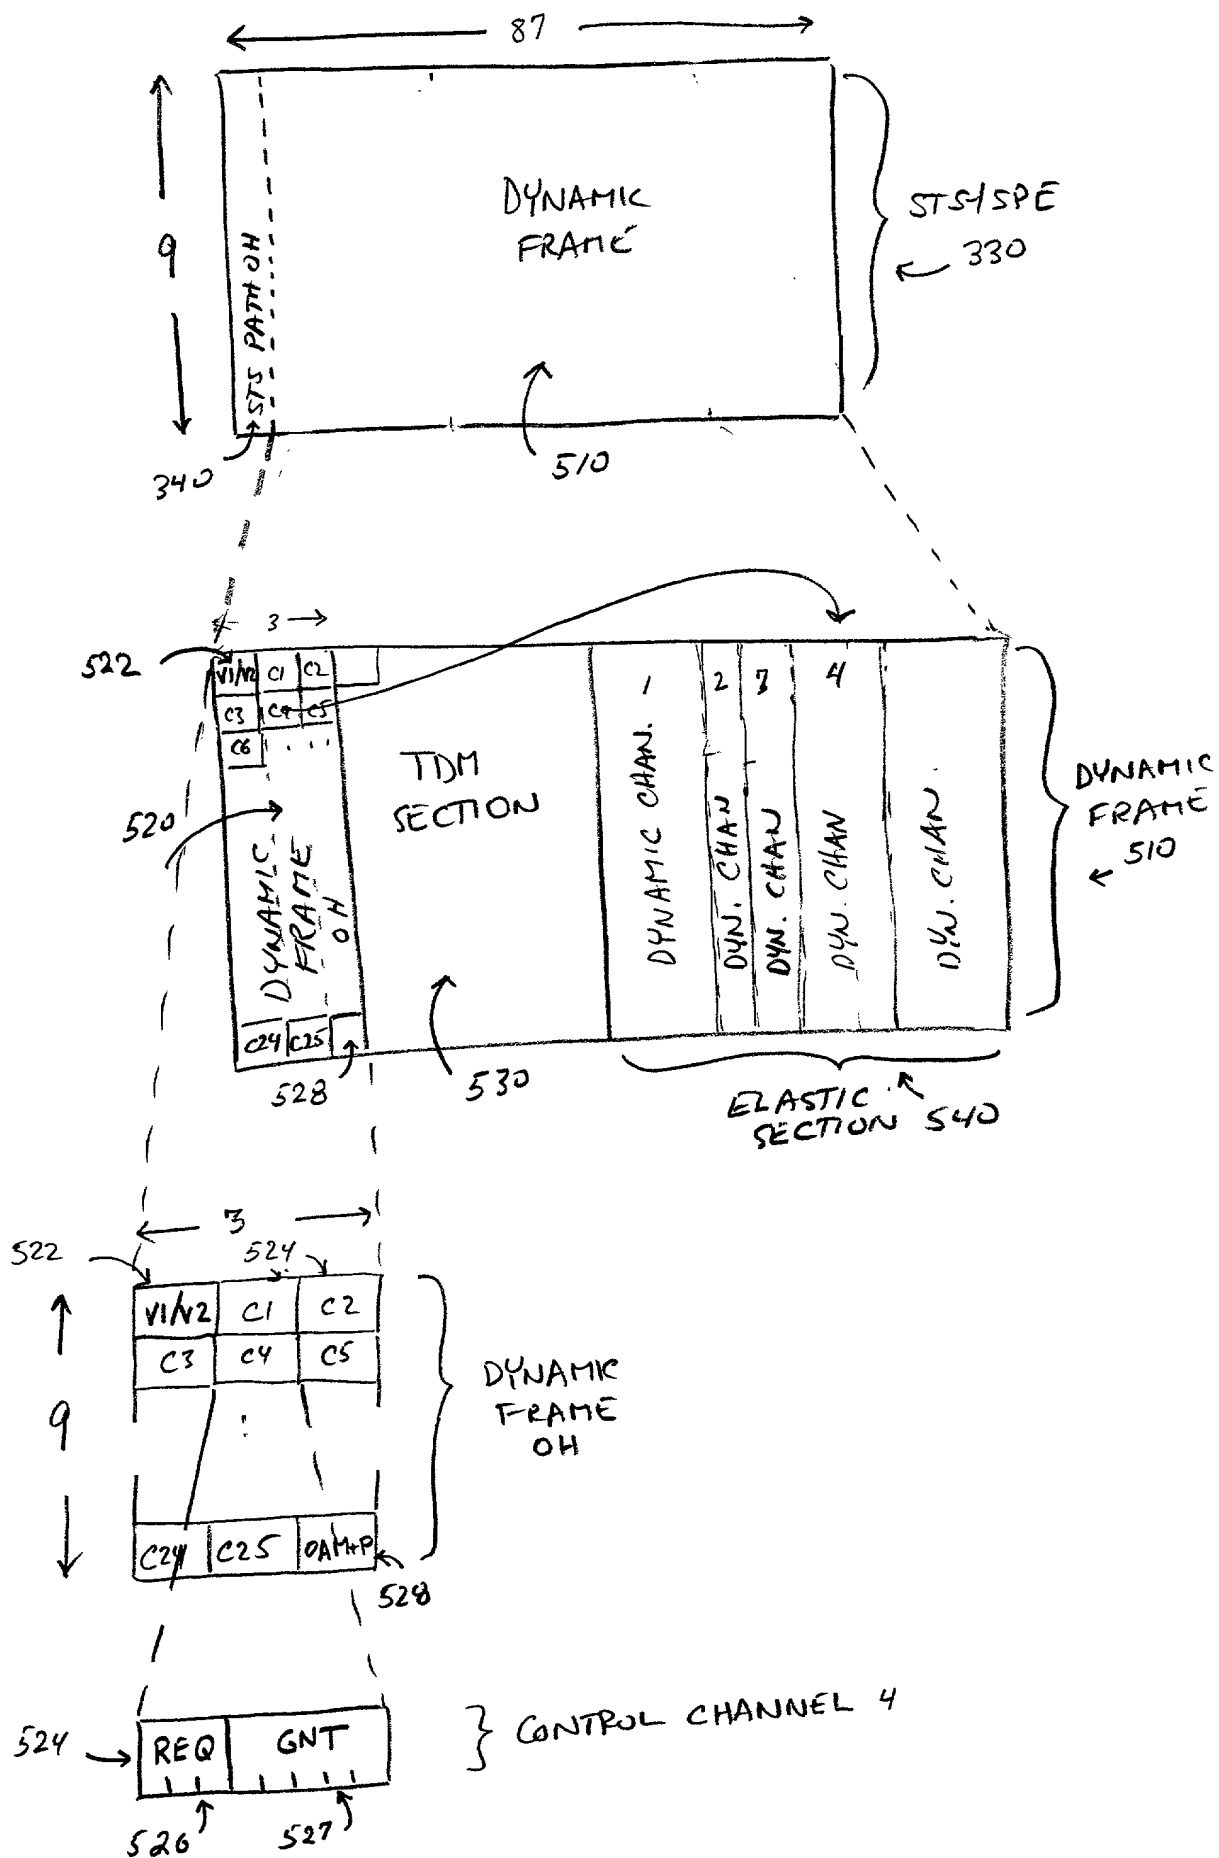 87
9
STS PATH OH
DYNAMIC
FRAME
STS-1 SPE
330
340
510
3
522
V1/V2 C1 C2
C3 C4 C5
C6
520
DYNAMIC
FRAME
OH
C24 C25
528
TDM
SECTION
530
1 2 3 4
DYNAMIC CHAN.
DYN. CHAN
DYN. CHAN
DYN. CHAN
DYN. CHAN.
DYNAMIC
FRAME
510
ELASTIC
SECTION 540
3
522
524
9
V1/V2 C1 C2
C3 C4 C5
C24 C25 OAM+P
528
DYNAMIC
FRAME
OH
524
REQ GNT
526
527
CONTROL CHANNEL 4